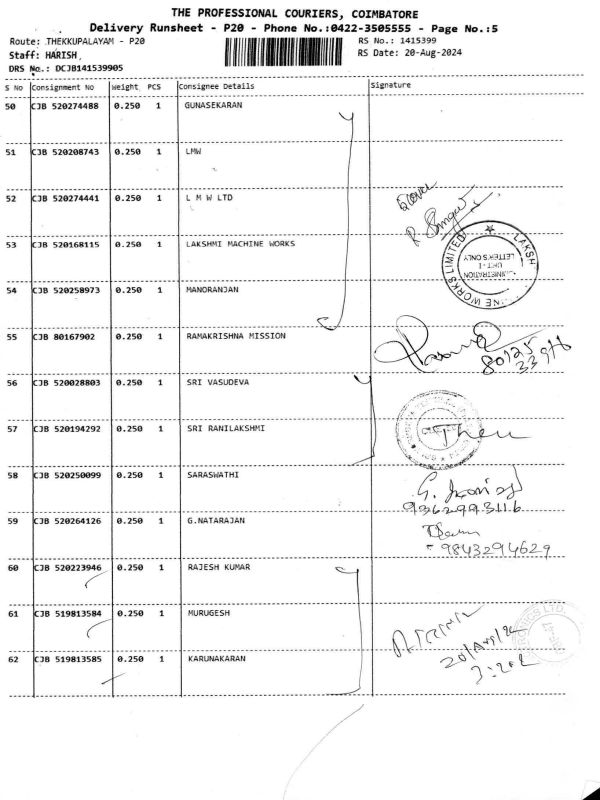 THE PROFESSIONAL COURIERS, COIMBATORE
Delivery Runsheet - P20 - Phone No.:0422-3505555 - Page No.:5
Route: THEKKUPALAYAM - P20 RS No.: 1415399
Staff: HARISH RS Date: 20-Aug-2024
DRS No.: DCJB141539905
S No Consignment No Weight PCS Consignee Details Signature
50 CJB 520274488 0.250 1 GUNASEKARAN
51 CJB 520208743 0.250 1 LMW
52 CJB 520274441 0.250 1 L M W LTD
53 CJB 520168115 0.250 1 LAKSHMI MACHINE WORKS
LAKSH
NE WORKS LIMITED
UNIT - I
LETTER'S ONLY
54 CJB 520258973 0.250 1 MANORANJAN
55 CJB 80167902 0.250 1 RAMAKRISHNA MISSION
80125
33976
56 CJB 520028803 0.250 1 SRI VASUDEVA
57 CJB 520194292 0.250 1 SRI RANILAKSHMI
58 CJB 520250099 0.250 1 SARASWATHI
9362993116
59 CJB 520264126 0.250 1 G.NATARAJAN
9843294629
60 CJB 520223946 0.250 1 RAJESH KUMAR
61 CJB 519813584 0.250 1 MURUGESH
62 CJB 519813585 0.250 1 KARUNAKARAN